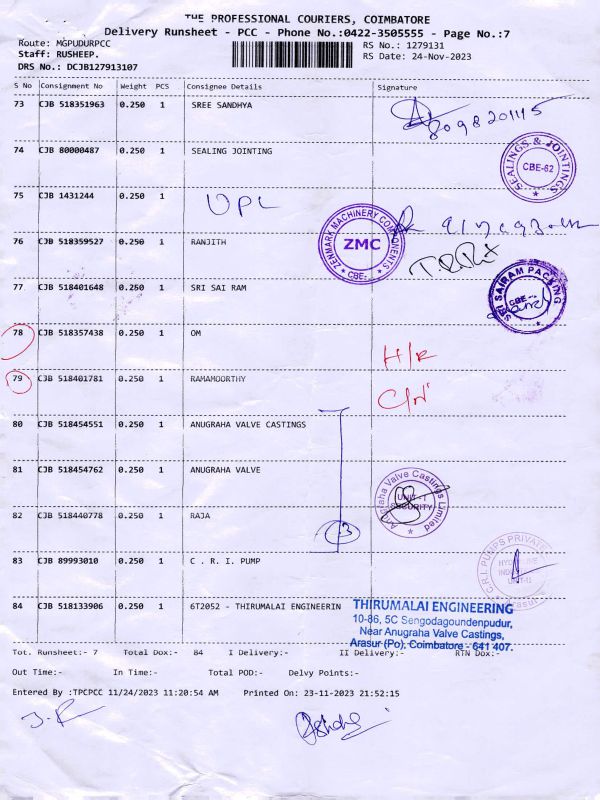 THE PROFESSIONAL COURIERS, COIMBATORE
Delivery Runsheet - PCC - Phone No.:0422-3505555 - Page No.:7
Route: MGPUDURPCC
RS No.: 1279131
Staff: RUSHEEP.
RS Date: 24-Nov-2023
DRS No.: DCJB127913107
S No Consignment No Weight PCS Consignee Details Signature
73 CJB 518351963 0.250 1 SREE SANDHYA
809820145
74 CJB 80000487 0.250 1 SEALING JOINTING
SEALINGS & JOINTINGS
CBE-62
75 CJB 1431244 0.250 1 UPL
ZENMARK MACHINERY COMPONENTS
ZMC
CBE-
76 CJB 518359527 0.250 1 RANJITH
77 CJB 518401648 0.250 1 SRI SAI RAM
SRI SAIRAM PACKING
CBE
78 CJB 518357438 0.250 1 OM
H/R
79 CJB 518401781 0.250 1 RAMAMOORTHY
C/N
80 CJB 518454551 0.250 1 ANUGRAHA VALVE CASTINGS
81 CJB 518454762 0.250 1 ANUGRAHA VALVE
Anugraha Valve Castings Limited
UNIT-I
SECURITY
82 CJB 518440778 0.250 1 RAJA
3
83 CJB 89993010 0.250 1 C . R. I. PUMP
C.R.I. PUMPS PRIVATE
84 CJB 518133906 0.250 1 6T2052 - THIRUMALAI ENGINEERIN
THIRUMALAI ENGINEERING
10-86, 5C Sengodagoundenpudur,
Near Anugraha Valve Castings,
Arasur (Po), Coimbatore - 641 407.
Tot. Runsheet:- 7 Total Dox:- 84 I Delivery:- II Delivery:- RTN Dox:-
Out Time:- In Time:- Total POD:- Delvy Points:-
Entered By :TPCPCC 11/24/2023 11:20:54 AM Printed On: 23-11-2023 21:52:15